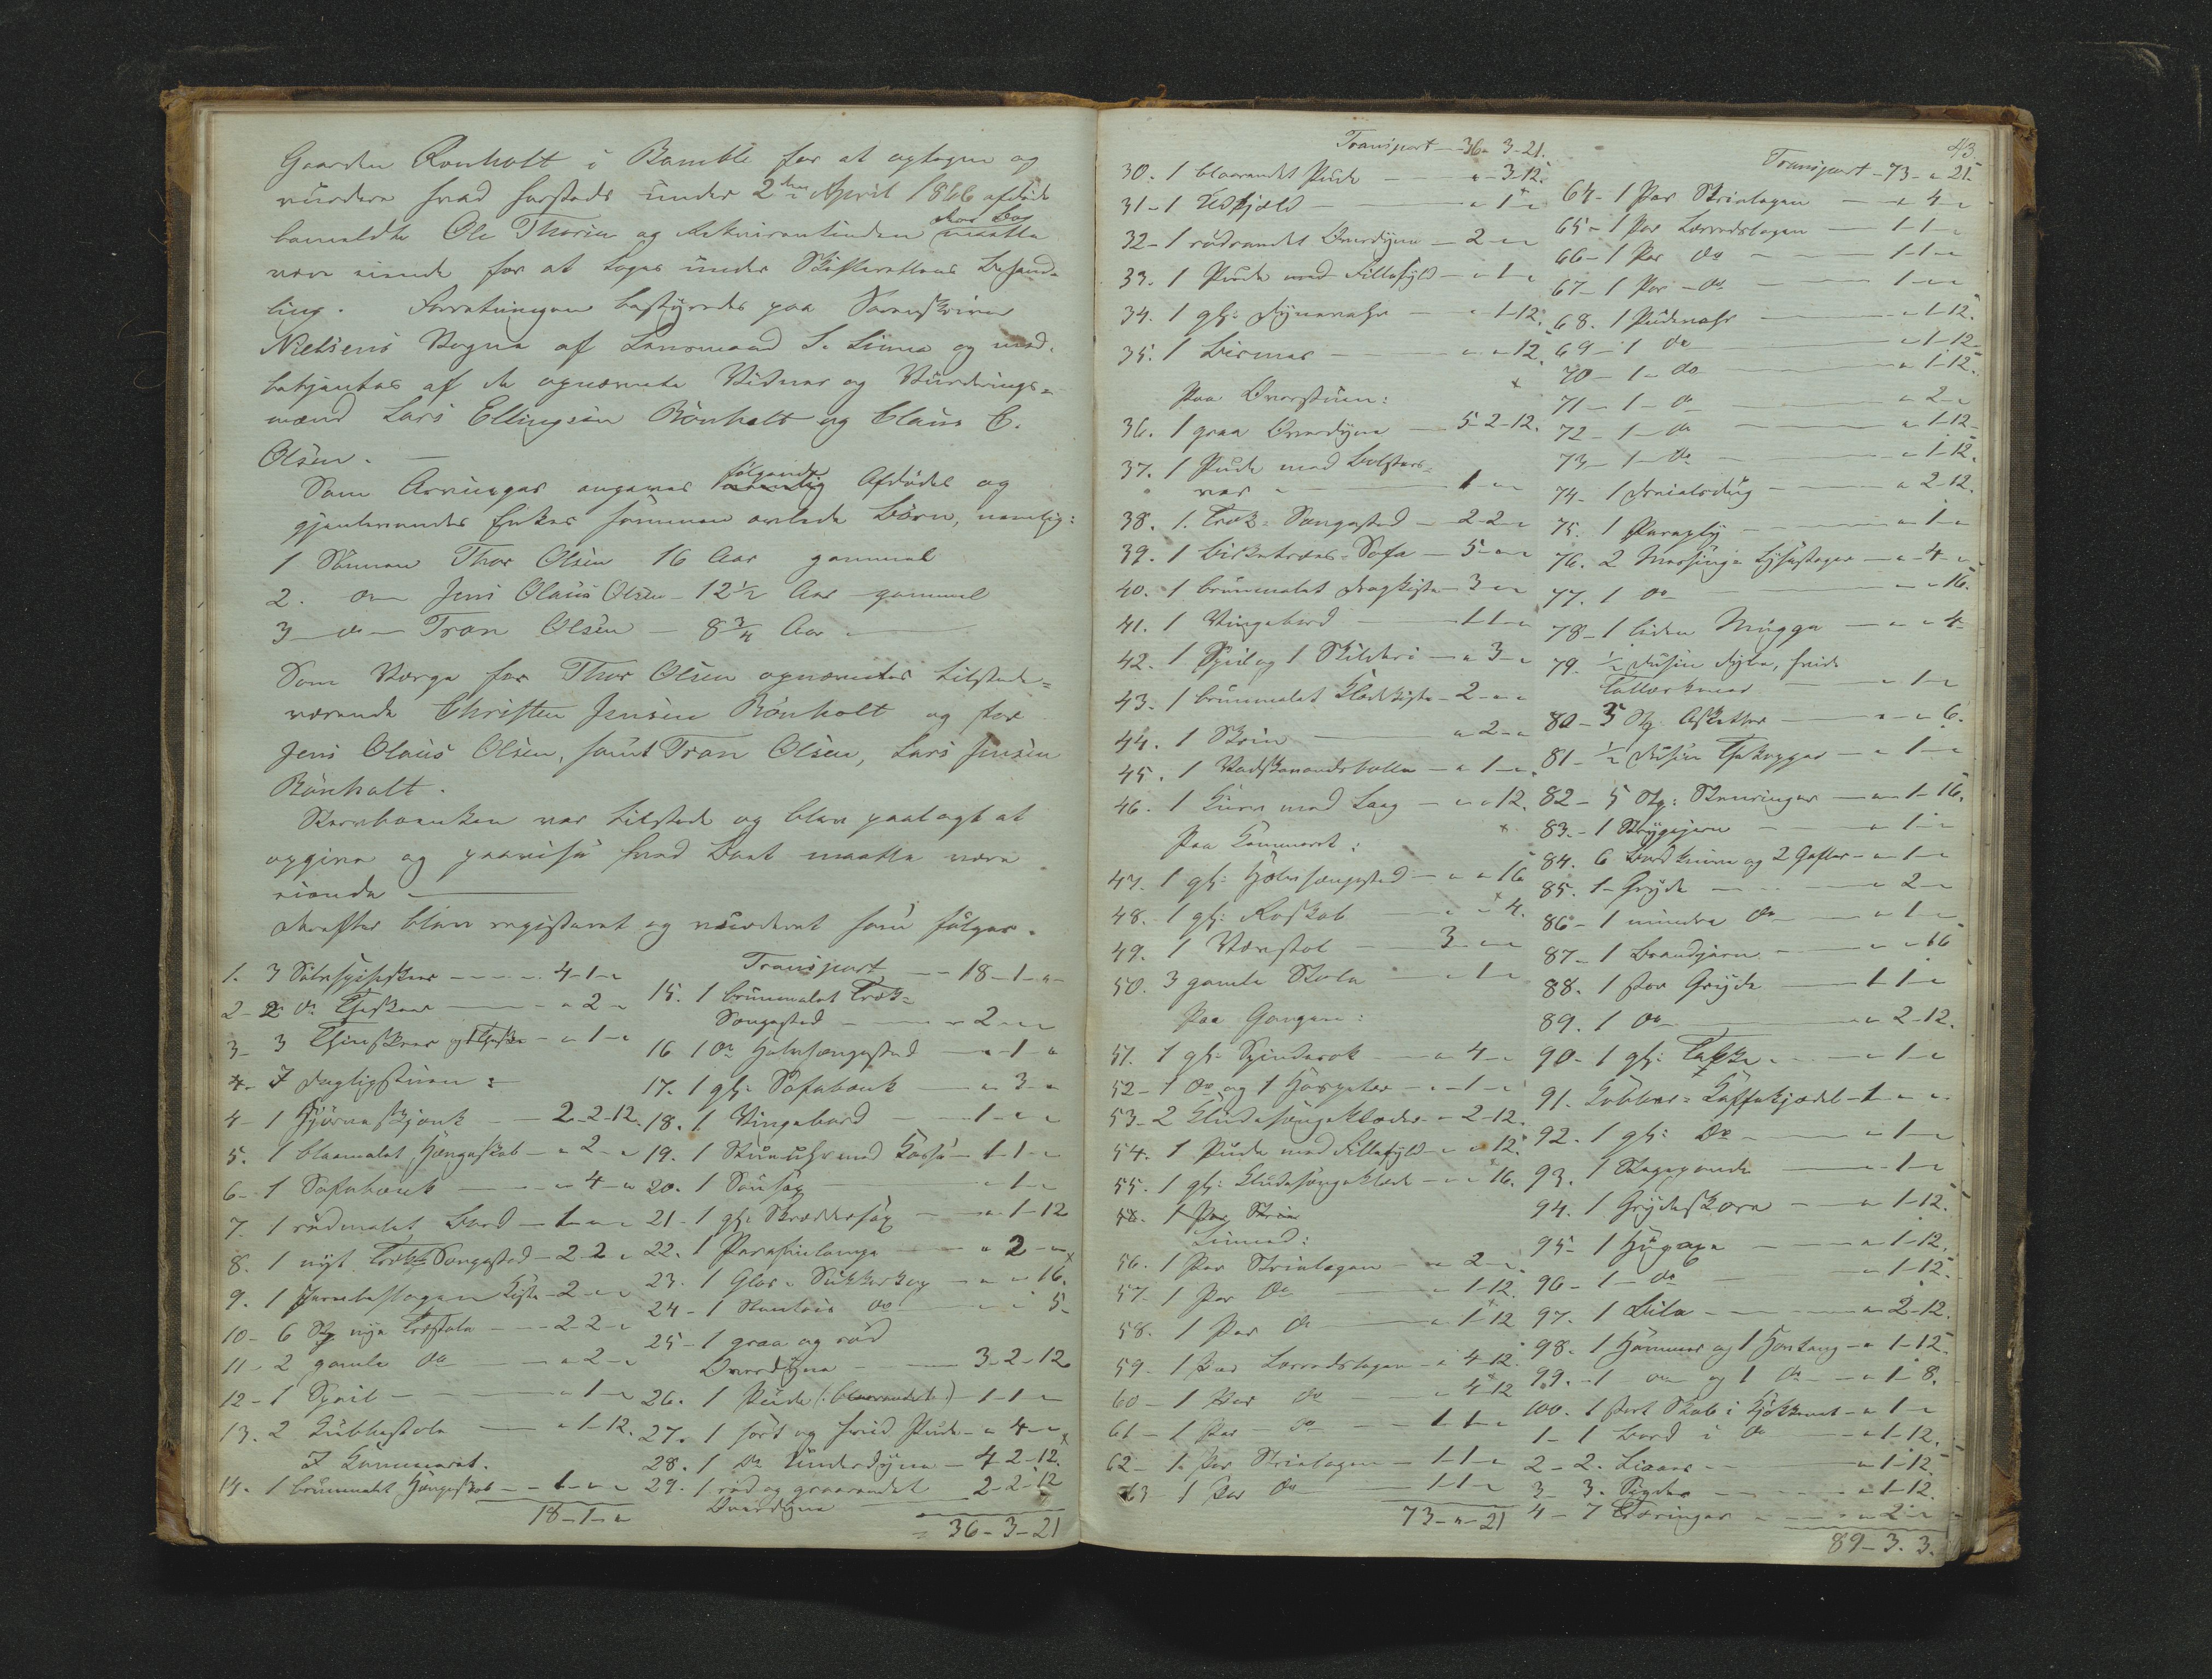 Gaarden Rønholt i Bamble for at optegne og
vurdere hvad forstods under 2den April 1866 afdøde
bemeldte Ole Thorsen og Rekvirentinden
deres Bo
maatte
være eiende for at tages under Skifterettens Behand-
ling. Forretningen bestyredes paa Sorenskriver
Nielsens Vegne af Lensmand S. Linne og med-
betjentes af de opnævnte Vidner og Vurderings-
mænd Lars Ellingsen Rönholt og Claus C.
Olsen.
Som Arvinger angaves følgende Afdødes og
gjenlevendes Enkes sammen avlede Børn, nemlig:
1 Sønnen Thor Olsen 16 Aar gammel
2. do Jens Olaus Olsen - 12½ Aar gammel
3 - do - Tron Olsen - 8¾ Aar
Som Værge for Thor Olsen opnævntes tilstede-
værende Christen Jensen Rönholt og for
Jens Olaus Olsen, samt Tron Olsen, Lars Jensen
Rönholt.
Stervboenken var tilstede og blev paalagt at
opgive og paavise hvad Boet maatte være
eiende
Derefter blev registeret og vurderet som følger.
1. 3 Sølvspiseskeer - 4-1-"
2- 2 do Theskeer - " 2 - "
3- 3 Thinskeer og Theske - " 1 - "
I Dagligstuen:
4- 1 Hjørneskjenk - 2-2-12.
5. 1 blaamalet Hængeskab - " 2 - "
6- 1 Sofabænk - " 4 - "
7. 1 rødmalet Bord - 1 - " - "
8. 1 nyt Træk Sengested - 2-2-"
9. 1 Jernbeslagen Kiste - 2 - " - "
10- 6 St. nye Træstole - 2-2-"
11- 2 gamle do - " 2 - "
12- 1 Speil - " 1 - "
13. 2 Kubbestole - " 1-12.
I Kammeret.
14. 1 brunmalet Hængeskab - 1 - " - "
18-1-"
Transport - 18-1-"
15. 1 brunmalet Træk-
Sengested - 2 - " - "
16 1 do Halvsengested - " 1 - "
17. 1 gl: Sofabænk - " 3 - "
18. 1 Vingebord - 1 - " - "
19. 1 Stueuhr med Kasse - 1-1-"
20. 1 Sausax - " 1 - "
21- 1 gl: Skræddersax - " 1-12
22. 1 Parafinlampe - " 2 - "
23. 1 Glas Sukkerkop - " " 16.
24- 1 Stentøis do - " " 5-
25- 1 graa og rød
Overdyne - 3-2-12
26. 1 Pude (: blaarandet :) - 1-1-"
27. 1 sort og hvid Pude - " 4 - "
28. 1 do Underdyne - 4-2-12.
29. 1 rød og graarandet 2-2-12
Overdyne
36-3-21
43.
Transport - 36-3-21.
30. 1 blaarandet Pude - " 3-12.
31- 1 Uldfjeld - " 1 "
32- 1 rødrandet Overdyne - 2 - " "
33. 1 Pude med Fillefyld - " 1 - "
34. 1 gl: Dynevahr - " 1-12.
35. 1 Bismer - " " 12.
Paa Overstuen:
36. 1 graa Overdyne - 5-2-12.
37. 1 Pude med Bolster-
var - 1 - " "
38. 1. Træk-Sengested - 2-2-"
39. 1 birketræs-Sofa - 5 - " "
40. 1 brunmalet Dragkiste - 3 - " "
41. 1 Vingebord - 1-1-"
42. 1 Speil og 1 Skilderi - " 3 - "
43. 1 brunmalet Klædekiste - 2 - " "
44. 1 Skrin - " 2 - "
45. 1 Vadskevandsbolle - " 1 - "
46. 1 Kurv med Laag - " " 12.
Paa Kammeret:
47. 1 gl: Halvsengested - " " 16
48. 1 gl: Roskab - " " 4.
49. 1 Vævstol - 3 - " "
50. 3 gamle Stole - " 1 - "
Paa Gangen:
51. 1 gl: Spinderok - " 4 - "
52- 1 do og 1 Haspetre - " 1 - "
53- 2 Kludesengeklæder - " 2-12.
54. 1 Pude med Fillefyld - " " 12.
55. 1 gl: Kludesengeklæde - " " 16.
Linned:
56. 1 Par Strielagen - " 2 - "
57- 1 Par do - " 1-12.
58. 1 Par do - " 1-12
59. 1 Par Lærredslagen - " 4-12.
60- 1 Par do - " 4-12
61- 1 Par - do - 1-1-"
62- 1. Par Strielagen - 1-1-"
63- 1 Par do - 1-1-"
73-"-21
Transport - 73-"-21.
64- 1 Par Strielagen - " 4 - "
65- 1 Par Lærredslagen - 1-1-"
66- 1 Par do - 1-1-"
67- 1 Par - do - 1 - " "
68. 1 Pudevahr - " 1-12.
69- 1 do - " 1-12-
70- 1- do - " 1-12.
71- 1- do - " 2 - "
72- 1- do - " 1-12-
73- 1- do - " 1-12.
74- 1 Dreielsdug - " 2-12.
75. 1 Paraply - " 1 - "
76. 2 Messing-Lysestager - " 4 - "
77. 1 do - " " 16.
78- 1 liden Mugge - " " 4-
79. ½ Dusin dybe, hvide
Tallerkener - " 1 - "
80- 3 St. Asketter - " " 6.
81- ½ Dusin Thekopper - " 1 - "
82- 5 St: Stenringer - " 1-16.
83.- 1 Strygejern - " 1 - "
84. 6 Bordknive og 2 Gafler - " 1 - "
85. 1- Gryde - " 2 - "
86- 1 mindre do - " 1 - "
87- 1 Brandjern - " " 16
88. 1 stor Gryde - 1-1-"
89. 1 do - " 2-12.
90- 1 gl: Takke - " 1 - "
91. Kobber-Kaffekjædel - 1 - " "
92. 1 gl: do - " 1 - "
93. 1 Stegepande - " 1 - "
94. 1 Grydeskore - " 1-12.
95- 1 Hugøxe - " 1-12.
96- 1- do - " 1-12.
97. 1 Bile - " 2-12.
98. 1 Hammer og 1 Hovtang - " 1-12.
99. 1 do og 1 do - " 1-8.
100. 1 stort Skab i Kjøkkenet - " 1 - "
1- 1 Bord i do - " 1-12.
2- 2. Liaaer - " 1-12.
3- 3. Sigder - " 1-12.
4- 7 Tæringer - " 2 - "
89-3.3.